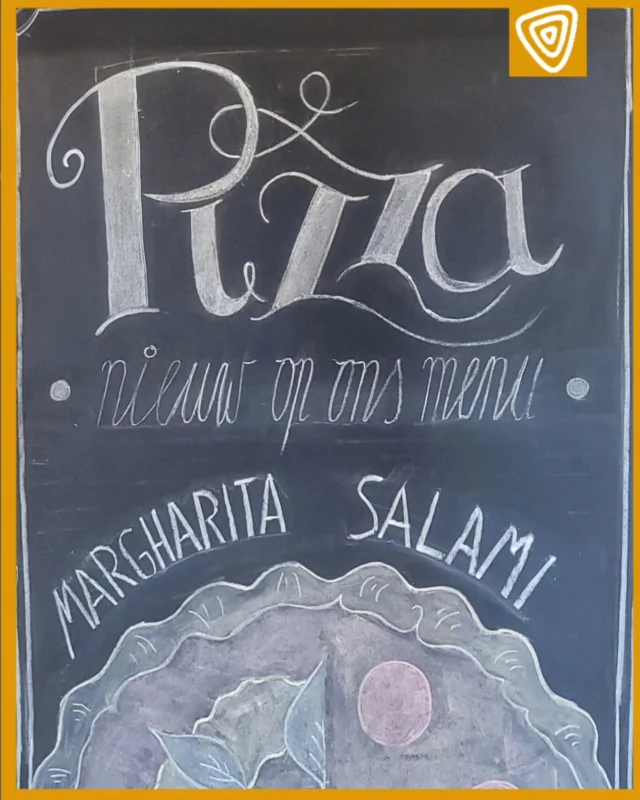 Pizza
nieuw op ons menu
MARGHARITA SALAMI